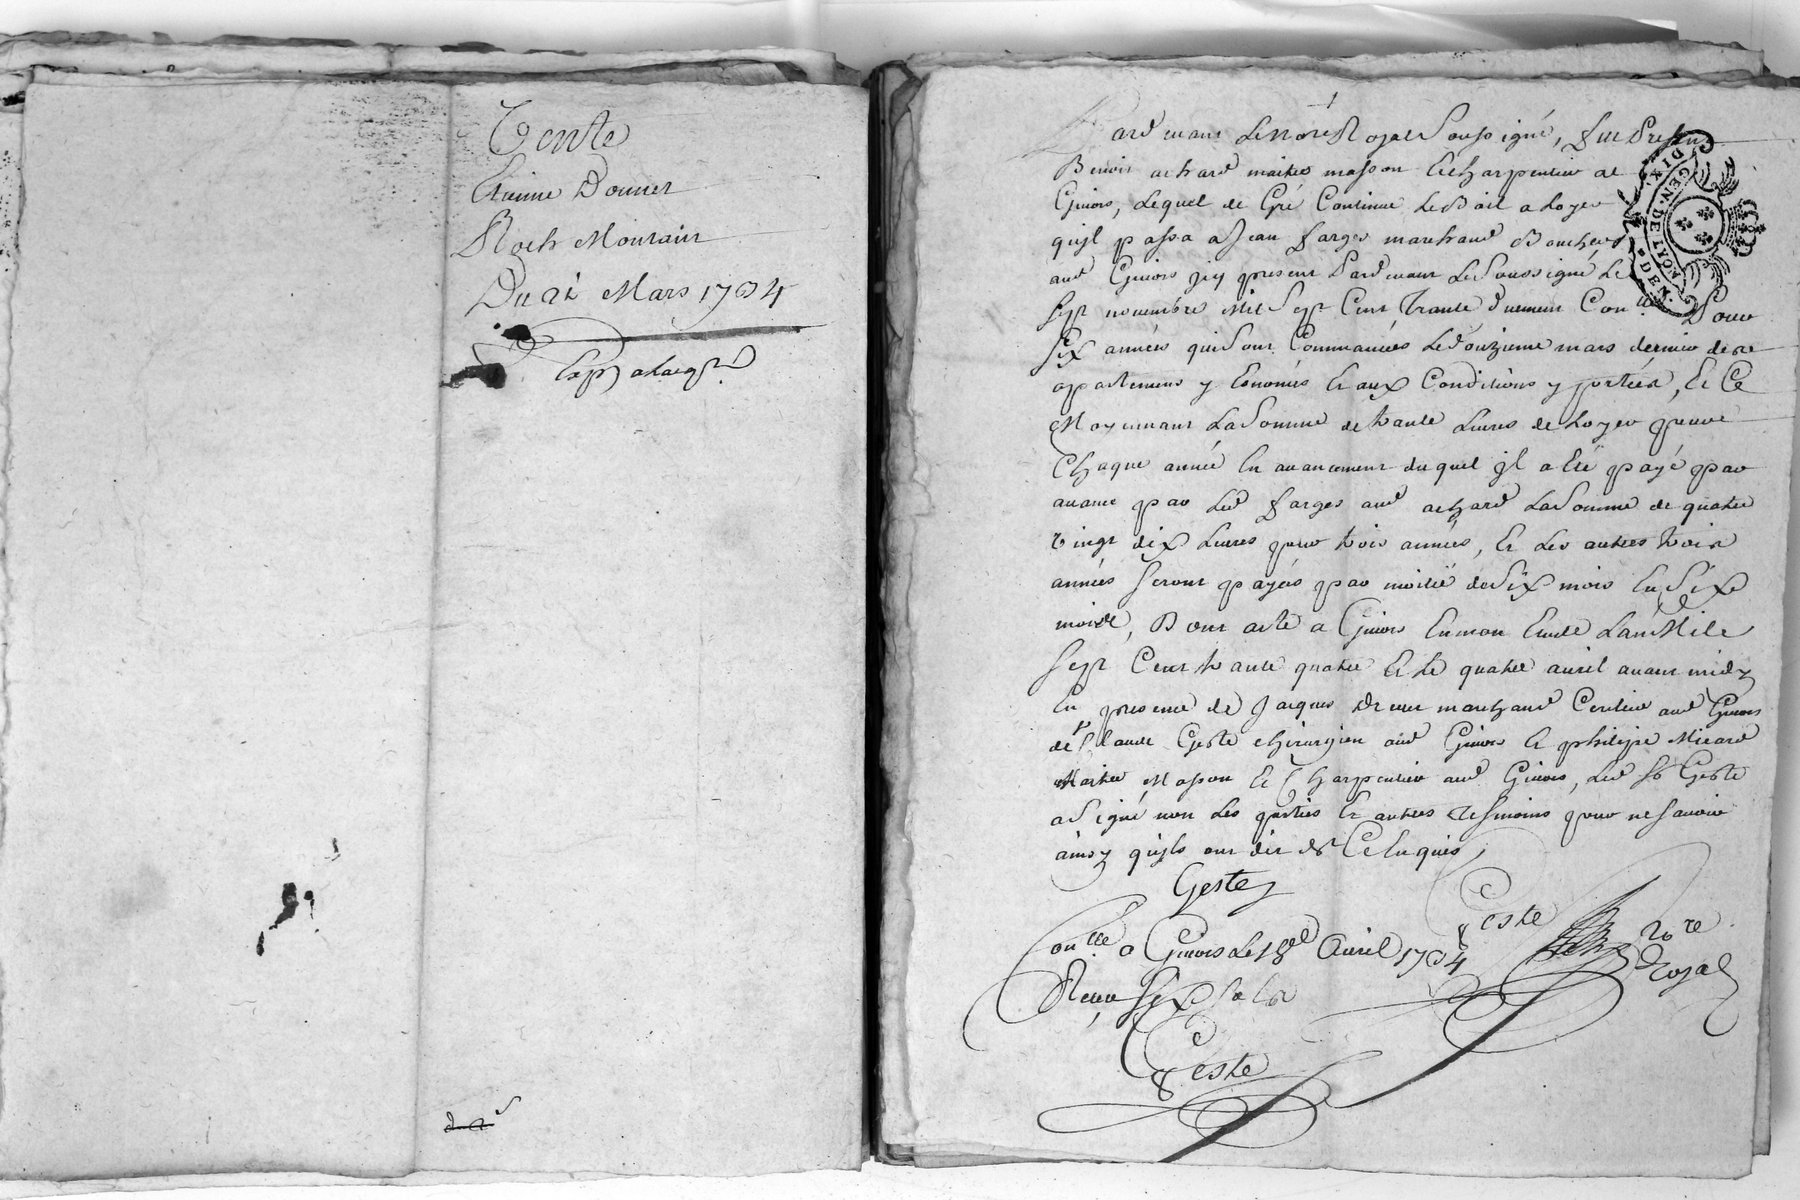 Vente
Etienne Donnet
Roch Montain
Du 21 Mars 1734
Pardevant Le no.re Royal Soussigné, fut Present
Benoit achard maitre masson Et charpentier de
Givors, Lequel de Gré Continue Le Bail a Loyer
qu'jl passa a Jean farges marchand Boucher
aud Givors jcy present Pardevant Le Soussigné Le
Sept novembre Mil Sept Cent Trante duement Con.llé Pour
Six années qui Sont Commancées Le douzieme mars dernier des
apartemens y Enoncés Et aux Conditions y portées, Et Ce
Moyennant La Somme de trante Livres de Loyer pour
Chaque année En avancement duquel jl a Eté payé par
avance par Led farges aud achard La Somme de quatre
vingt dix Livres pour trois années, Et Les autres trois
années Seront payées par moitié de Six mois En Six
mois, Dont acte a Givors En mon Etude L'an Mile
Sept Cent trante quatre Et le quatre avril avant midy
En presence de Jacques marchand aud Givors
de Claude Geste chirurgien aud Givors Et philipe Micard
Maitre Masson Et Charpentier aud Givors, Led Sr Geste
a Signé non Les parties Et autres Tesmoins pour ne Savoir
ainsy qu'jls ont dit de Ce Enquis
Geste
Geste no.re
Royal
Con.llé a Givors Le 18e Avril 1734
Reçu Six sols
Geste
GEN. DE LYON
DIX DEN.